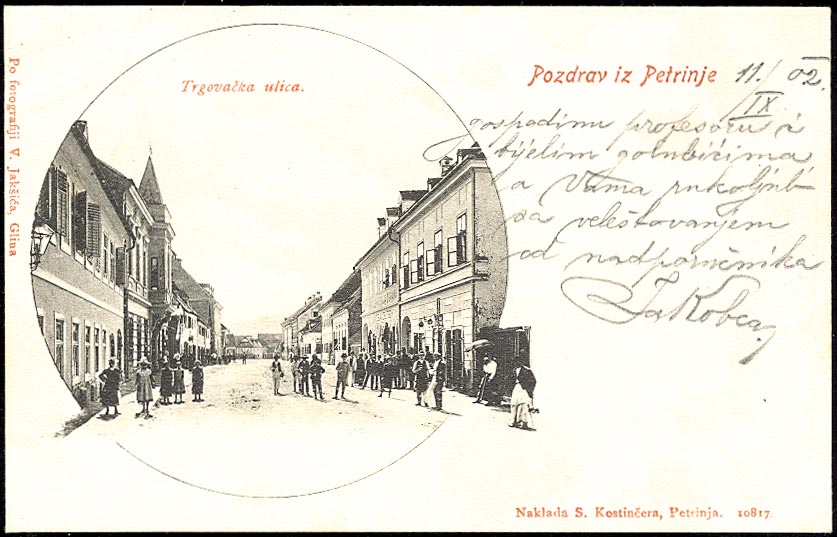 Po fotografiji V. Jakšića, Glina
Trgovačka ulica.
Pozdrav iz Petrinje 11./IX 02.
gospodinu profesoru i
bijelim golubićima
a Vama rukoljub
sa veleštovanjem
od nadporučnika
Jakobca
Naklada S. Kostinčera, Petrinja. 10817.